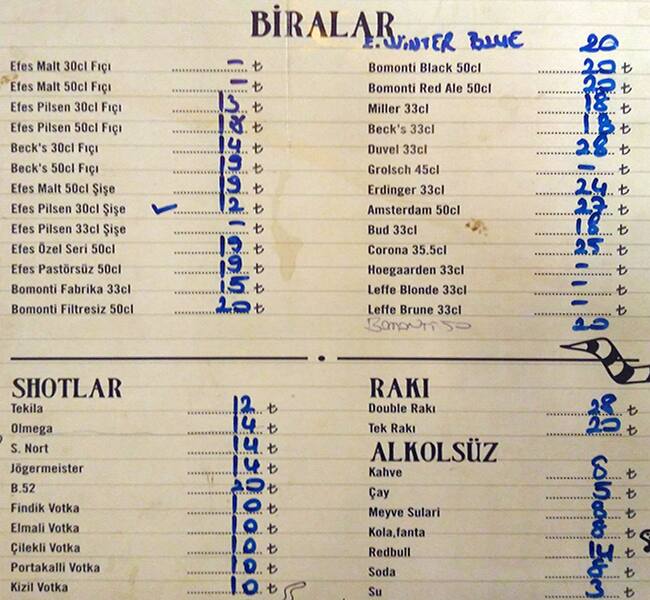 BİRALAR
E. WINTER BLUE 20
Efes Malt 30cl Fıçı - ₺
Efes Malt 50cl Fıçı - ₺
Efes Pilsen 30cl Fıçı 13 ₺
Efes Pilsen 50cl Fıçı 18 ₺
Beck's 30cl Fıçı 14 ₺
Beck's 50cl Fıçı 19 ₺
Efes Malt 50cl Şişe 19 ₺
Efes Pilsen 30cl Şişe ✓ 12 ₺
Efes Pilsen 33cl Şişe - ₺
Efes Özel Seri 50cl 19 ₺
Efes Pastörsüz 50cl 19 ₺
Bomonti Fabrika 33cl 15 ₺
Bomonti Filtresiz 50cl 20 ₺
Bomonti Black 50cl 20 ₺
Bomonti Red Ale 50cl 20 ₺
Miller 33cl 18 ₺
Beck's 33cl 18 ₺
Duvel 33cl 28 ₺
Grolsch 45cl - ₺
Erdinger 33cl 24 ₺
Amsterdam 50cl 27 ₺
Bud 33cl 18 ₺
Corona 35.5cl 25 ₺
Hoegaarden 33cl - ₺
Leffe Blonde 33cl - ₺
Leffe Brune 33cl - ₺
Bomonti 50 20
SHOTLAR
Tekila 12 ₺
Olmega 14 ₺
S. Nort 14 ₺
Jögermeister 14 ₺
B.52 20 ₺
Findik Votka 10 ₺
Elmali Votka 10 ₺
Çilekli Votka 10 ₺
Portakalli Votka 10 ₺
Kizil Votka 10 ₺
RAKI
Double Rakı 28 ₺
Tek Rakı 20 ₺
ALKOLSÜZ
Kahve 8 ₺
Çay 5 ₺
Meyve Sulari 8 ₺
Kola,fanta 8 ₺
Redbull 14 ₺
Soda ₺
Su 3 ₺